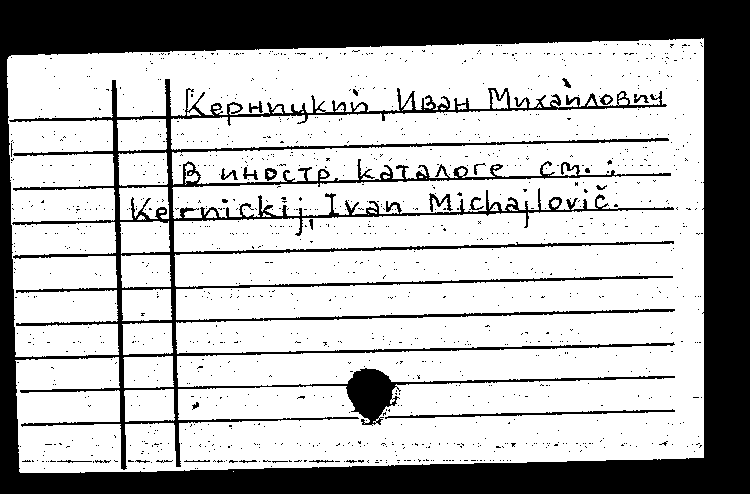 Керницкий, Иван Михайлович
В иностр. каталоге см. :
Kernickij, Ivan Michajlovič.